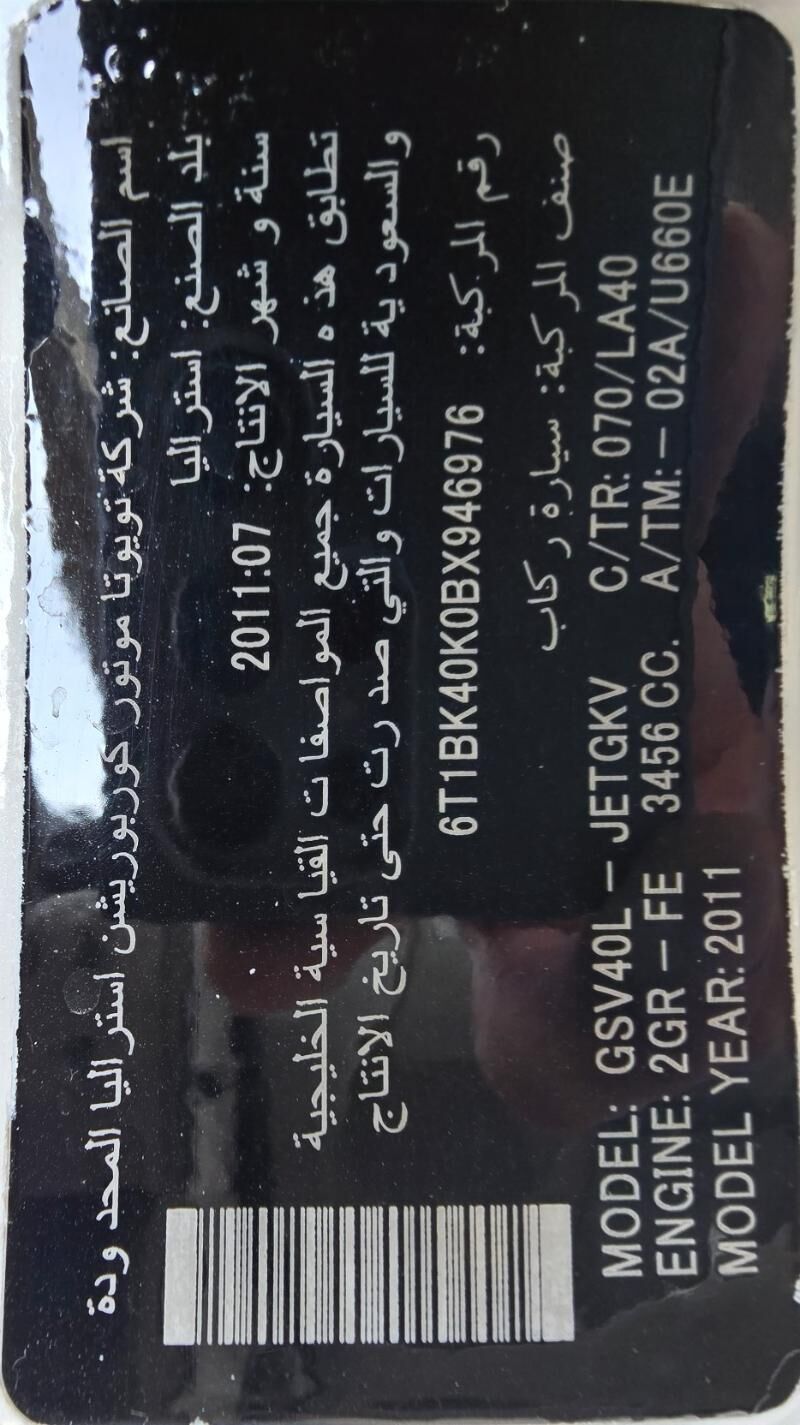 اسم الصانع: شركة تويوتا موتور كوربوريشن استراليا المحدودة
بلد الصنع: استراليا
سنة و شهر الانتاج: 2011:07
تطابق هذه السيارة جميع المواصفات القياسية الخليجية
والسعودية للسيارات والتي صدرت حتى تاريخ الانتاج
رقم المركبة: 6T1BK40K0BX946976
صنف المركبة: سيارة ركاب
MODEL: GSV40L – JETGKV C/TR: 070/LA40
ENGINE: 2GR – FE 3456 CC. A/TM: – 02A/U660E
MODEL YEAR: 2011